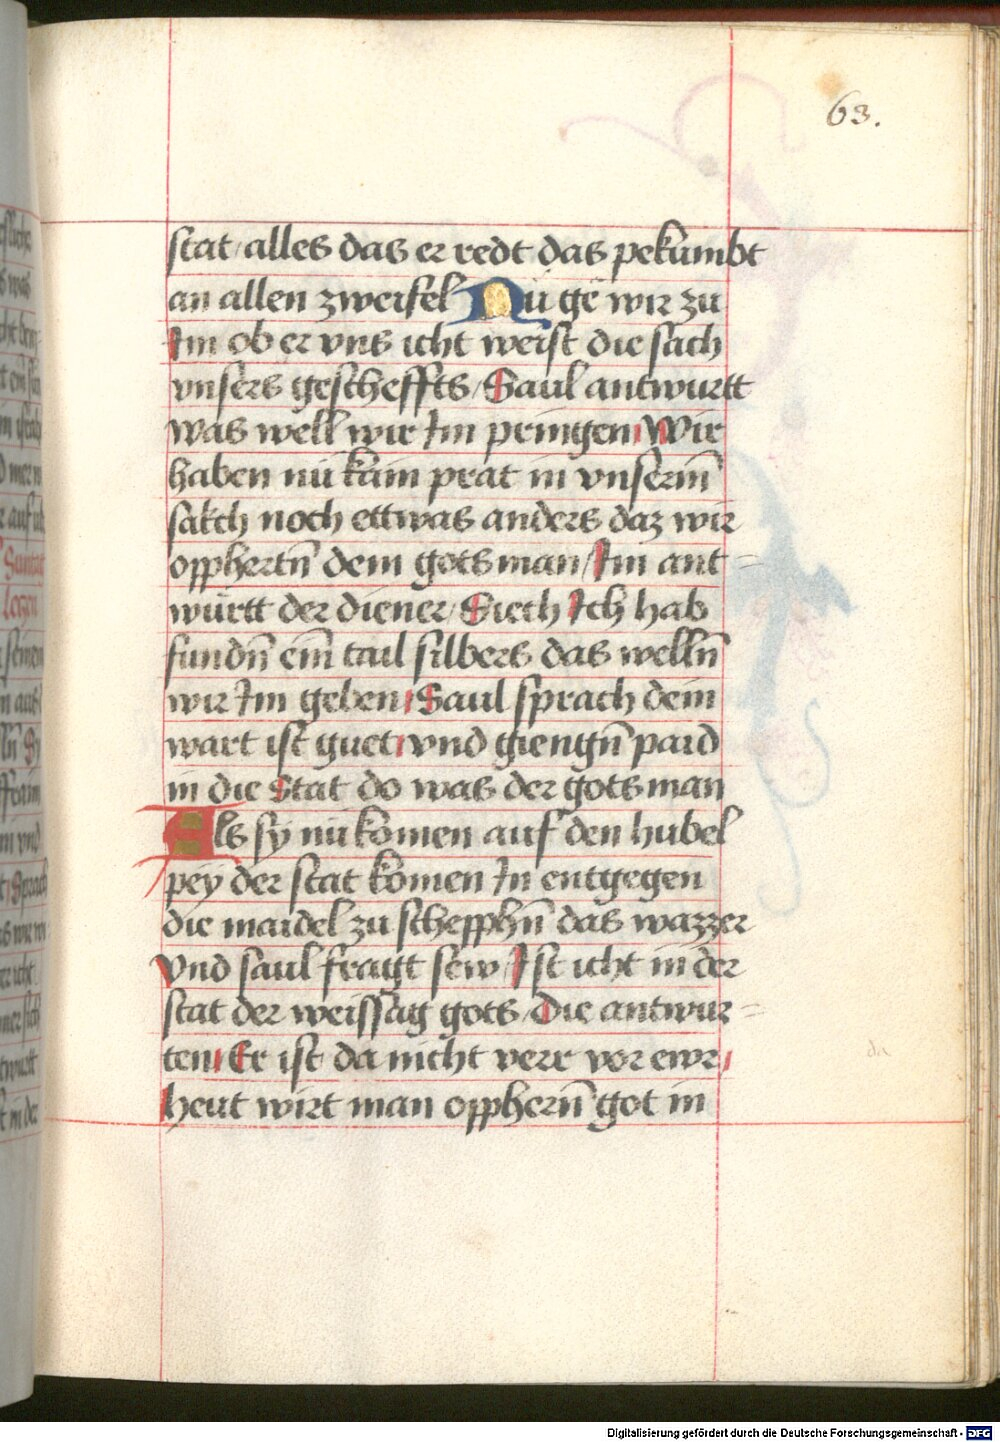 63.
stat / alles das er redt das pekumbt
an allen zweifel Nu ge wir zu
Im ob er vns icht weist die sach
vnsers gescheffts / Saul antwurtt
was well wir Im pringen Wir
haben nu kain prat in vnserm̄
sakch noch ettwas anders daz wir
opphertn̄ dem gots man / Im ant=
wurtt der diener / Siech Ich hab
fundn̄ ein̄ tail silbers das welln̄
wir Im geben Saul sprach dein
wart ist guet vnd giengn̄ paid
in die Stat do was der gots man
Als sy nu komen auf den hubel
pey der stat komen In entgegen
die maidel zu schepphn̄ das wazzer
Vnd saul fragt sew / Ist icht in der
stat der weissag gots / Die antwur=
ten Er ist da nicht verr vor ewr
heut wirt man opphern̄ got in
da
Digitalisierung gefördert durch die Deutsche Forschungsgemeinschaft - DFG